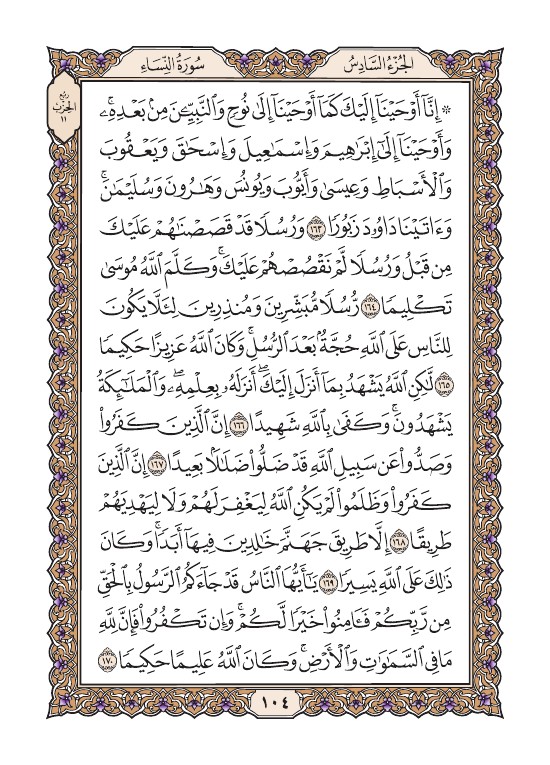 الجُزْءُ السَّادِسُ
سُورَةُ النِّسَاءِ
رُبْع
الحِزْب
١١
۞ إِنَّآ أَوْحَيْنَآ إِلَيْكَ كَمَآ أَوْحَيْنَآ إِلَىٰ نُوحٍ وَٱلنَّبِيِّـۧنَ مِنۢ بَعْدِهِۦۚ
وَأَوْحَيْنَآ إِلَىٰٓ إِبْرَٰهِيمَ وَإِسْمَٰعِيلَ وَإِسْحَٰقَ وَيَعْقُوبَ
وَٱلْأَسْبَاطِ وَعِيسَىٰ وَأَيُّوبَ وَيُونُسَ وَهَٰرُونَ وَسُلَيْمَٰنَۚ
وَءَاتَيْنَا دَاوُۥدَ زَبُورًا ١٦٣ وَرُسُلًا قَدْ قَصَصْنَٰهُمْ عَلَيْكَ
مِن قَبْلُ وَرُسُلًا لَّمْ نَقْصُصْهُمْ عَلَيْكَۚ وَكَلَّمَ ٱللَّهُ مُوسَىٰ
تَكْلِيمًا ١٦٤ رُّسُلًا مُّبَشِّرِينَ وَمُنذِرِينَ لِئَلَّا يَكُونَ
لِلنَّاسِ عَلَى ٱللَّهِ حُجَّةٌۢ بَعْدَ ٱلرُّسُلِۚ وَكَانَ ٱللَّهُ عَزِيزًا حَكِيمًا
١٦٥ لَّٰكِنِ ٱللَّهُ يَشْهَدُ بِمَآ أَنزَلَ إِلَيْكَۖ أَنزَلَهُۥ بِعِلْمِهِۦۖ وَٱلْمَلَٰٓئِكَةُ
يَشْهَدُونَۚ وَكَفَىٰ بِٱللَّهِ شَهِيدًا ١٦٦ إِنَّ ٱلَّذِينَ كَفَرُوا۟
وَصَدُّوا۟ عَن سَبِيلِ ٱللَّهِ قَدْ ضَلُّوا۟ ضَلَٰلًۢا بَعِيدًا ١٦٧ إِنَّ ٱلَّذِينَ
كَفَرُوا۟ وَظَلَمُوا۟ لَمْ يَكُنِ ٱللَّهُ لِيَغْفِرَ لَهُمْ وَلَا لِيَهْدِيَهُمْ
طَرِيقًا ١٦٨ إِلَّا طَرِيقَ جَهَنَّمَ خَٰلِدِينَ فِيهَآ أَبَدًاۚ وَكَانَ
ذَٰلِكَ عَلَى ٱللَّهِ يَسِيرًا ١٦٩ يَٰٓأَيُّهَا ٱلنَّاسُ قَدْ جَآءَكُمُ ٱلرَّسُولُ بِٱلْحَقِّ
مِن رَّبِّكُمْ فَـَٔامِنُوا۟ خَيْرًا لَّكُمْۚ وَإِن تَكْفُرُوا۟ فَإِنَّ لِلَّهِ
مَا فِى ٱلسَّمَٰوَٰتِ وَٱلْأَرْضِۚ وَكَانَ ٱللَّهُ عَلِيمًا حَكِيمًا ١٧٠
١٠٤